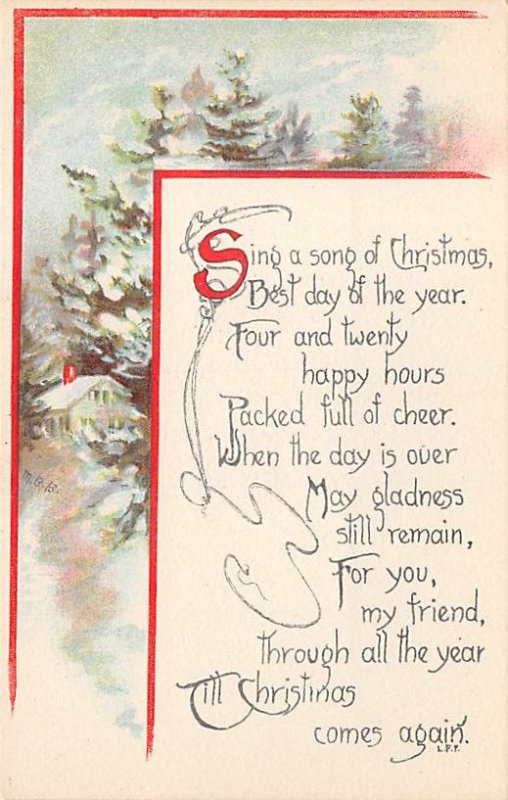 Sing a song of Christmas,
Best day of the year.
Four and twenty
happy hours
Packed full of cheer.
When the day is over
May gladness
still remain,
For you,
my friend,
through all the year
Till Christmas
comes again.
L.F.P.